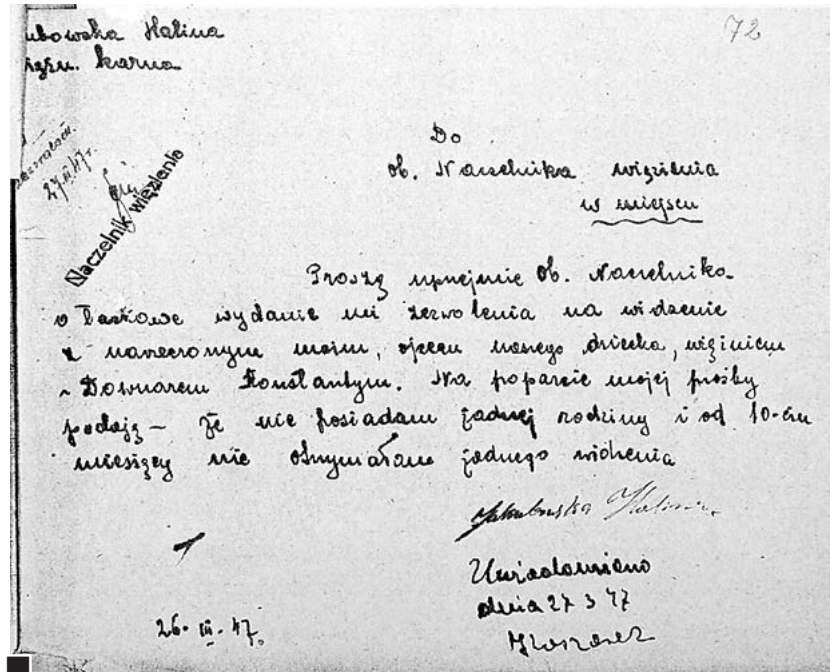 72
ubowska Halina
karna
27 III 47 r.
Naczelnik więzienia
Do
ob. Naczelnika więzienia
w miejscu
Proszę uprzejmie Ob. Naczelnika
o łaskawe wydanie mi zezwolenia na widzenie
z narzeczonym moim, ojcem naszego dziecka, więźniem
Downarem Konstantym. Na poparcie mojej prośby
podaję – że nie posiadam żadnej rodziny i od 10-ciu
miesięcy nie otrzymałam żadnego widzenia
Halina
Uwiadomiono
dnia 27 3 47
26. III. 47.